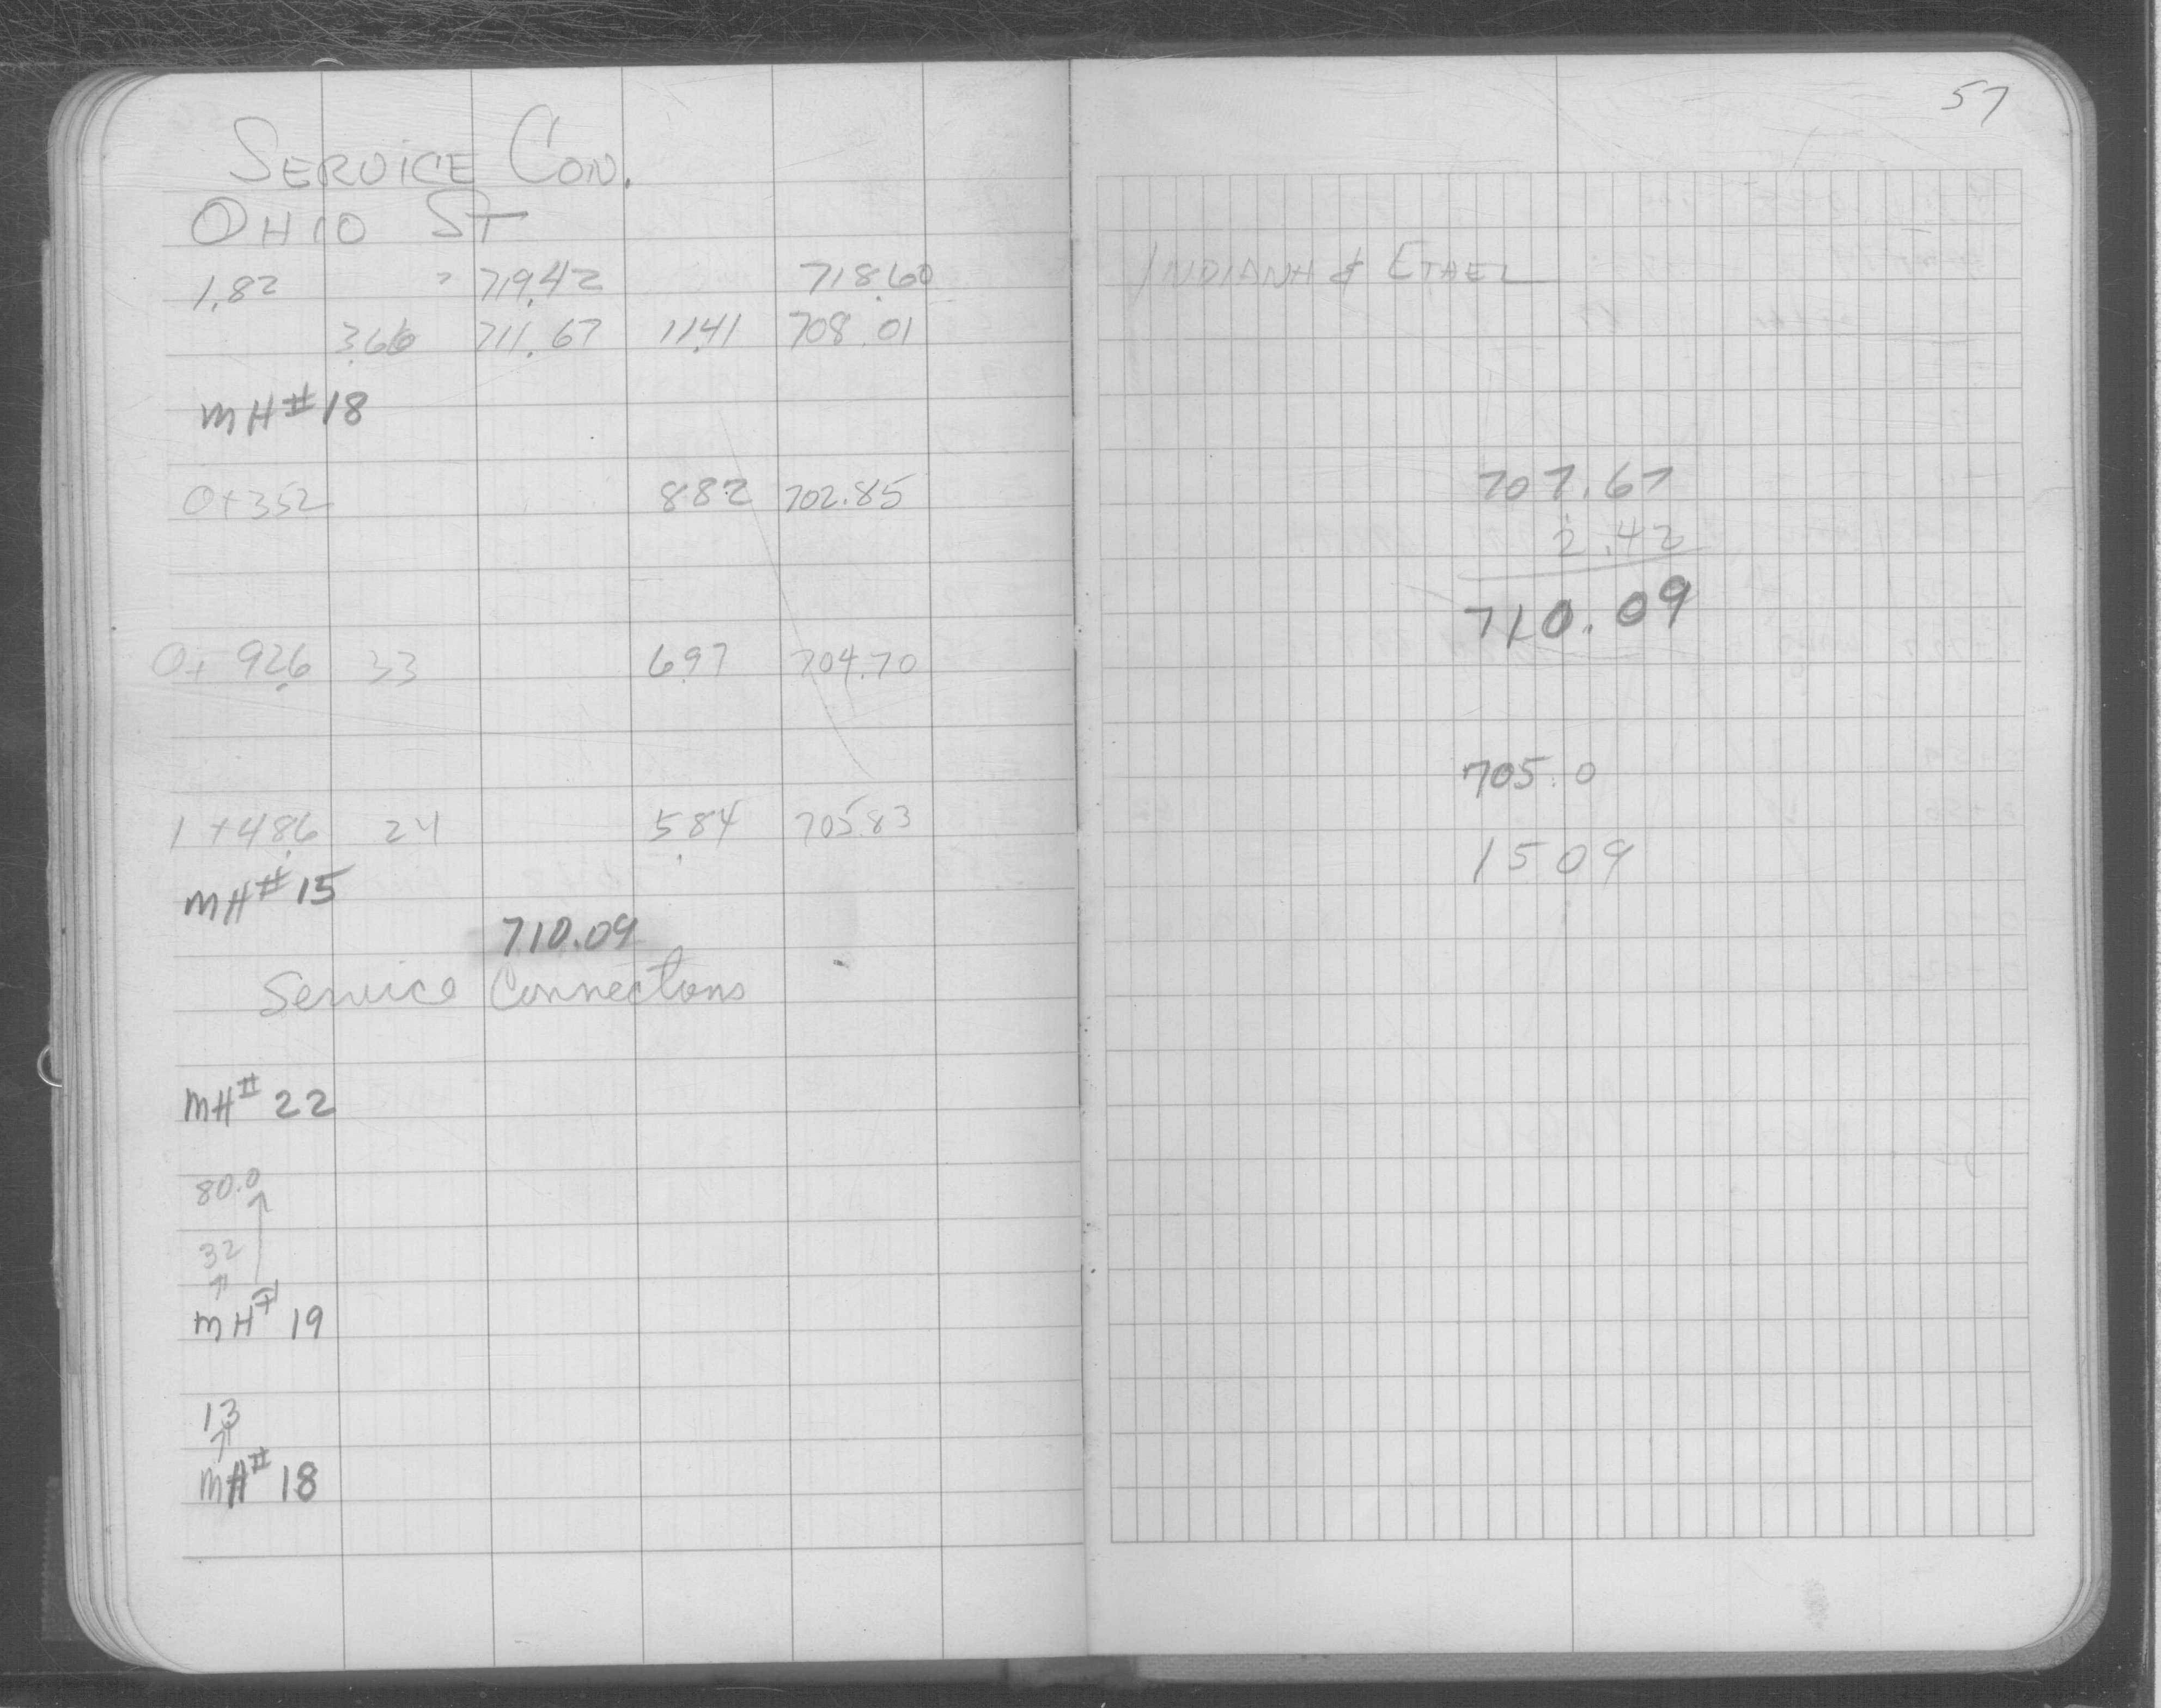 SERVICE CON.
OHIO ST
1.82 719.42 718.60
3.66 711.67 11.41 708.01
MH#18
0+352 8.82 702.85
0+92.6 33 6.97 704.70
1+48.6 24 5.84 705.83
MH#15
710.09
Service Connections
MH# 22
80.0
32
MH# 19
13
MH# 18
57
INDIANA & ETHEL
707.67
2.42
710.09
705.0
1509